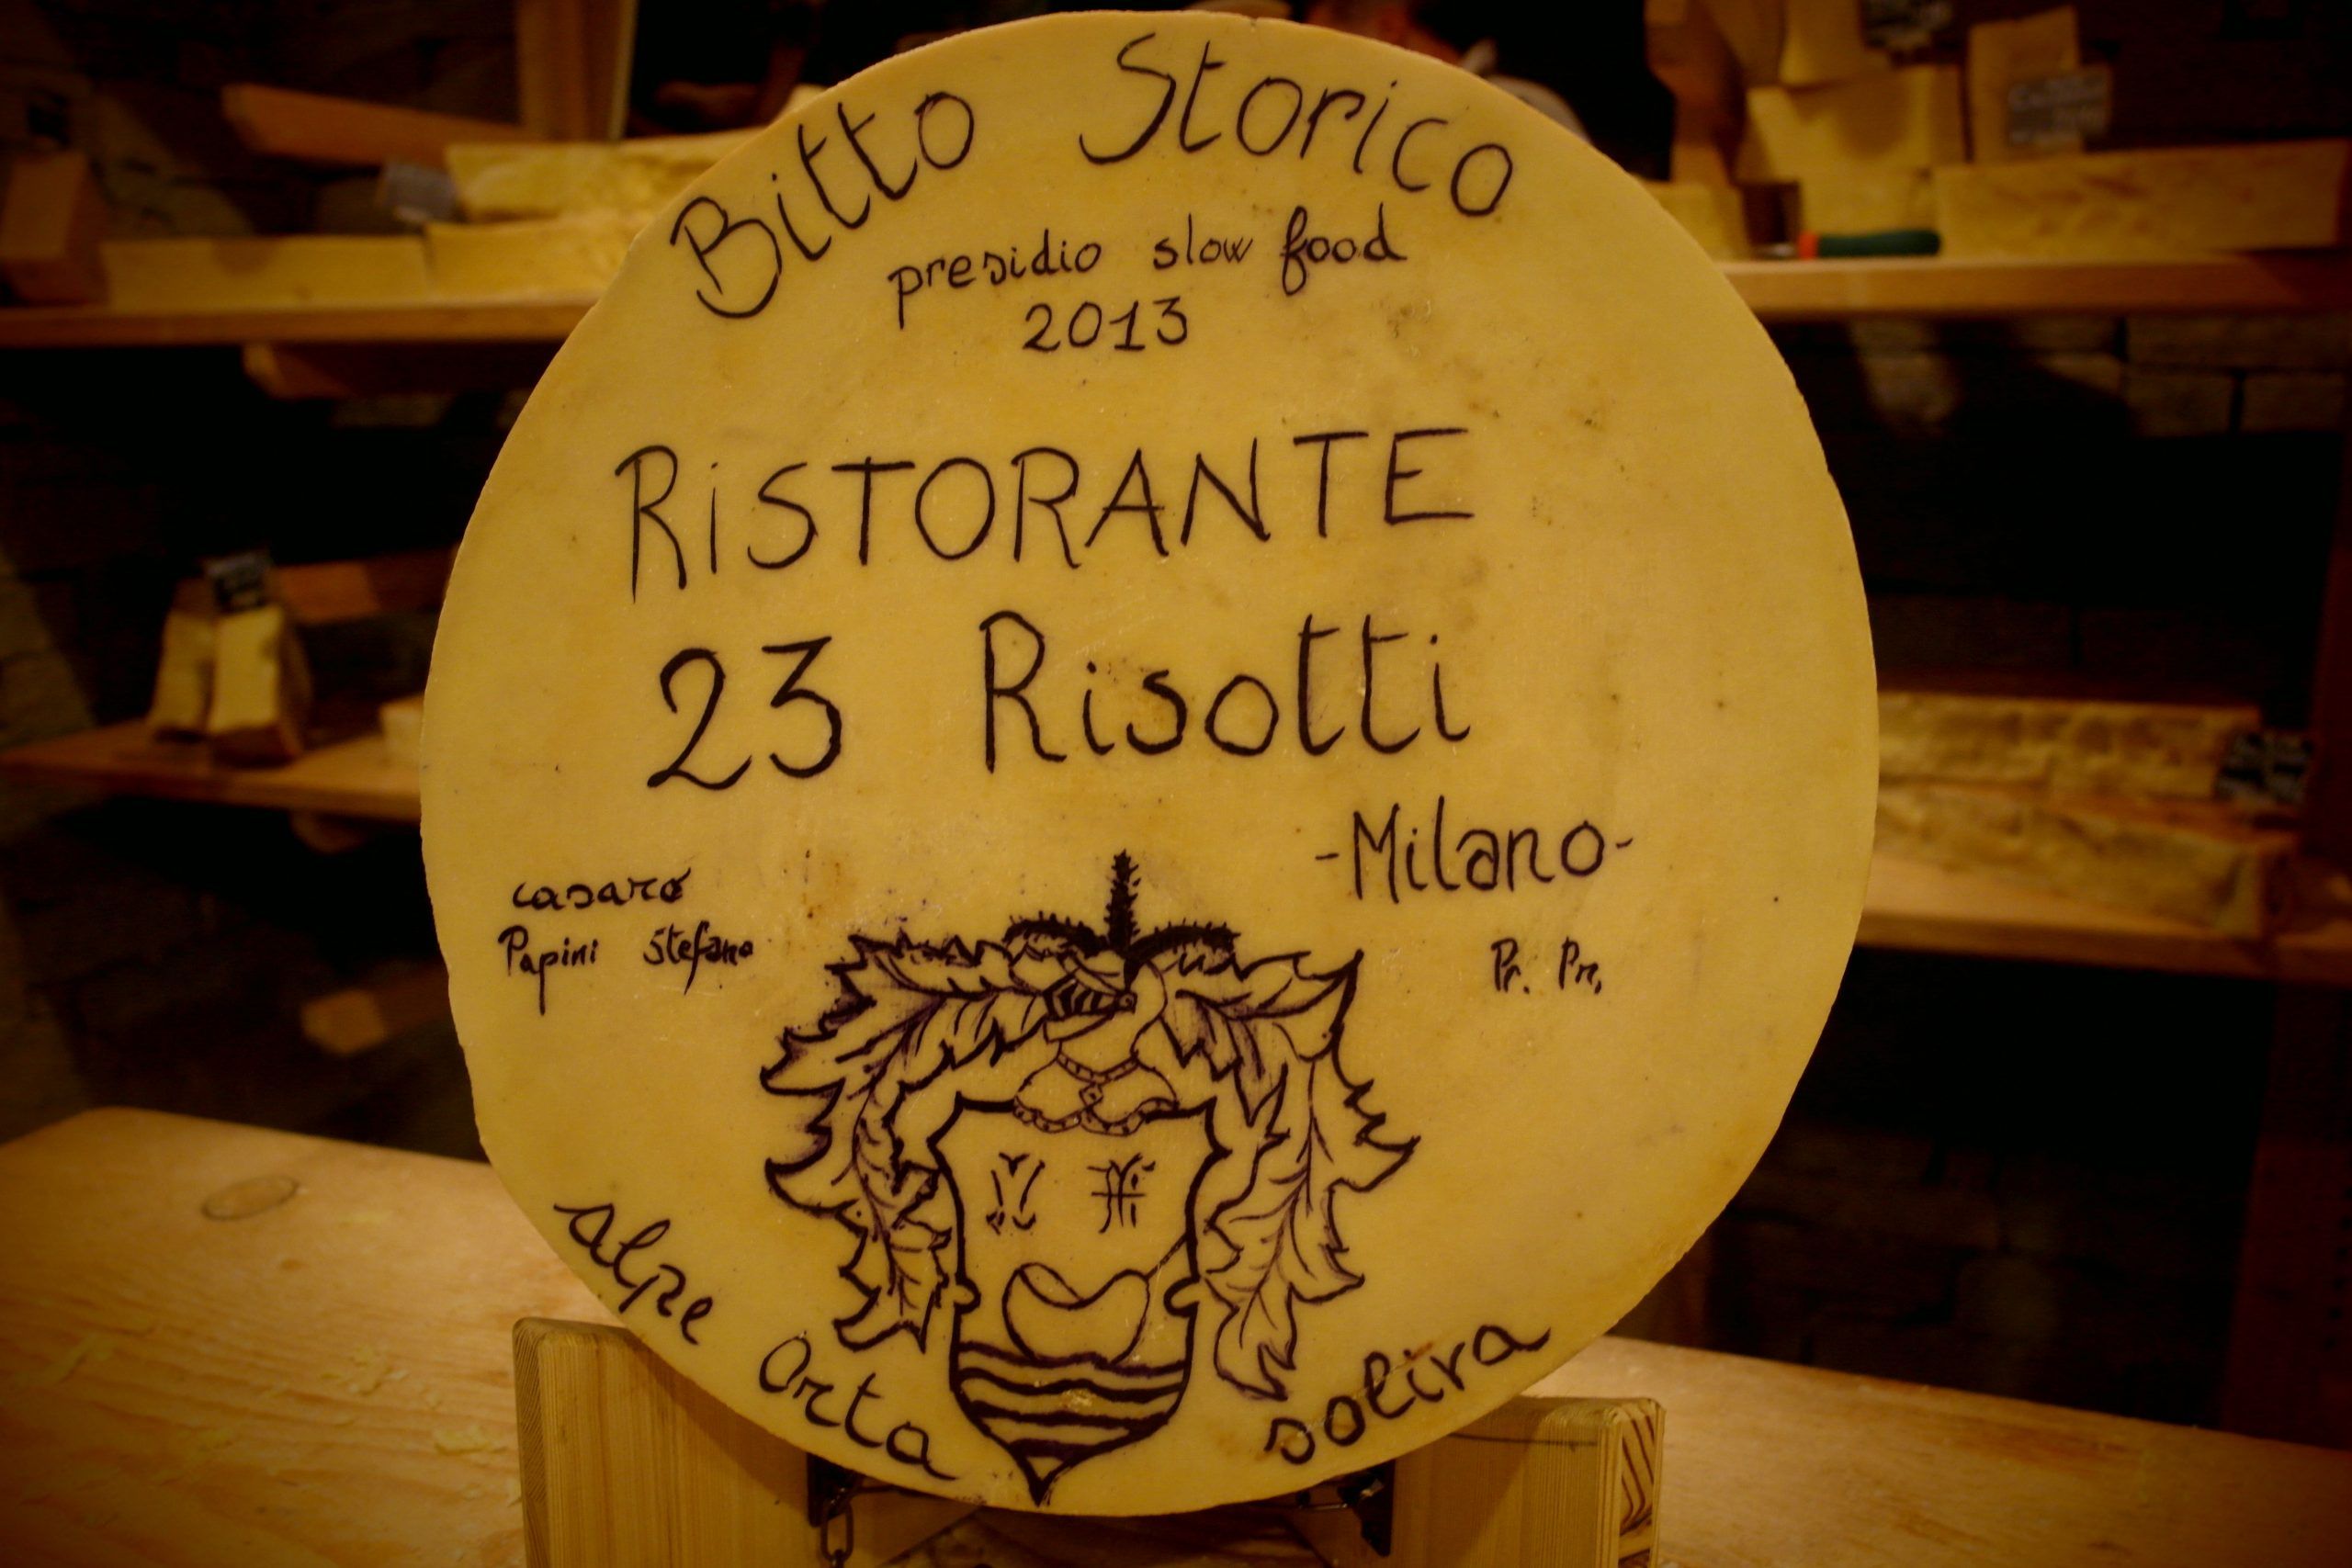 Bitto Storico
presidio slow food
2013
RiSTORANTE
23 Risotti
-Milano-
casaro
Papini Stefano
Pr. Pr.
alpe Orta soliva